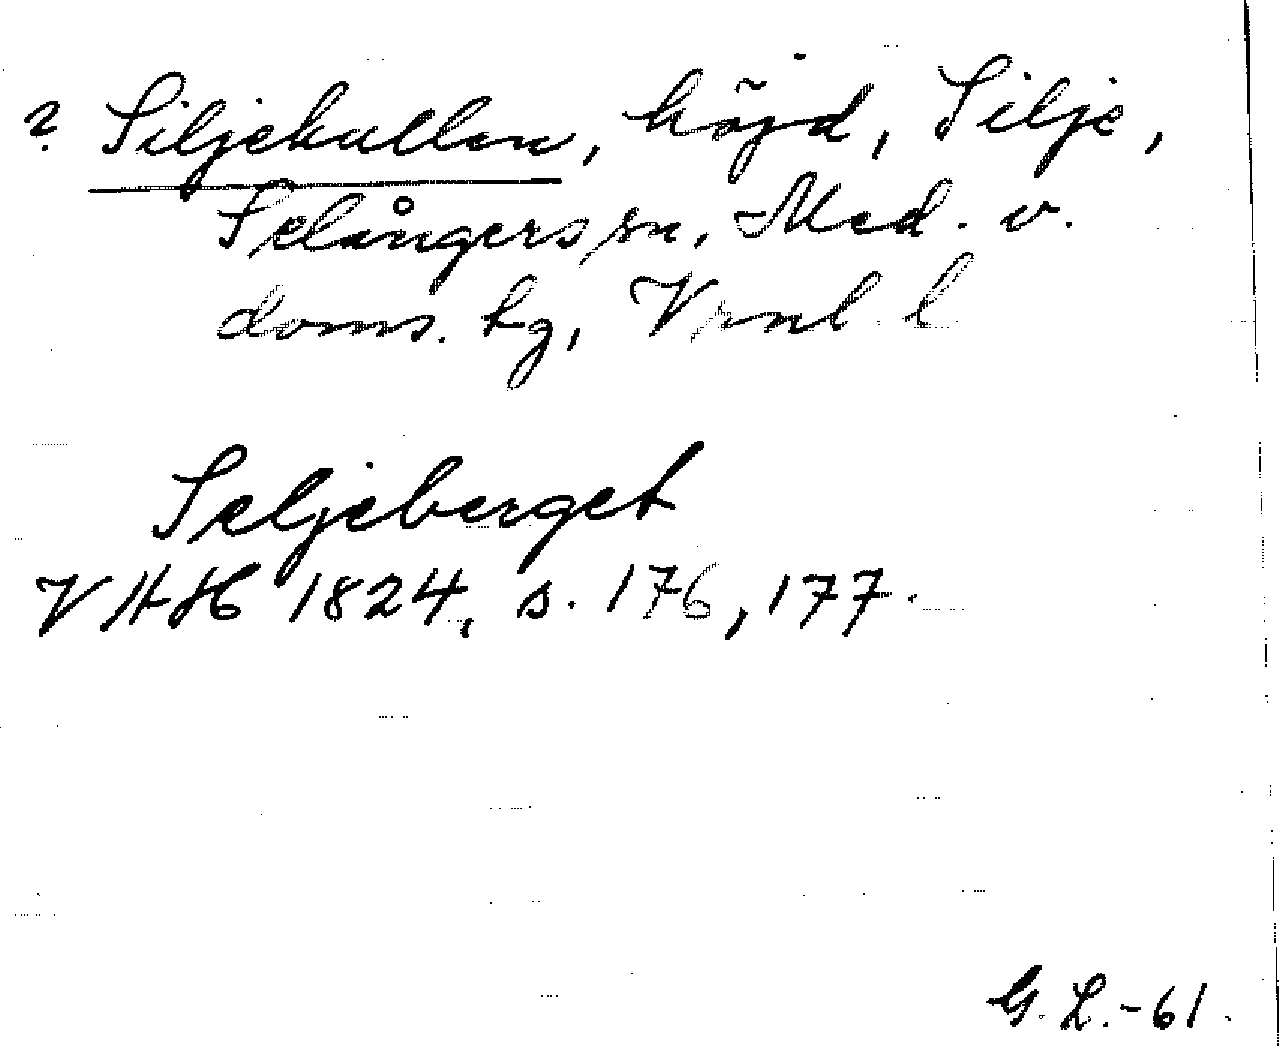 ? Siljekullen, höjd, Silje,
Selångers sn, Med. v.
doms. hg, Vrnl. l
Seljeberget
VHAH 1824, s. 176, 177.
G. L. -61.